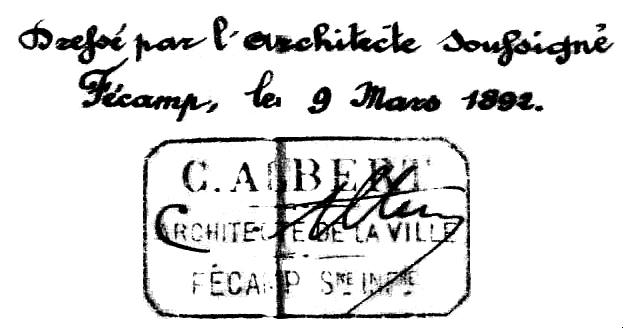 Dressé par l'architecte soussigné
Fécamp, le 9 Mars 1892.
C. ALBERT
ARCHITECTE DE LA VILLE
FÉCAMP SNE INFRE